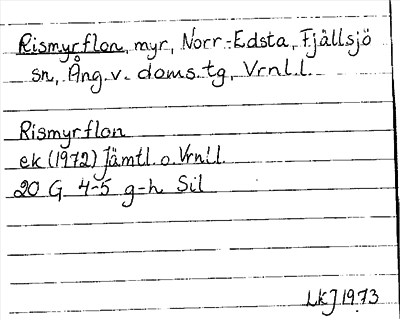 Rismyrflon, myr, Norr-Edsta, Fjällsjö
sn, Ång. v. doms.tg, Vrnl.l.
Rismyrflon
ek (1972) Jämtl. o. Vrnl.l.
20 G 4-5 g-h Sil
LKJ 1973